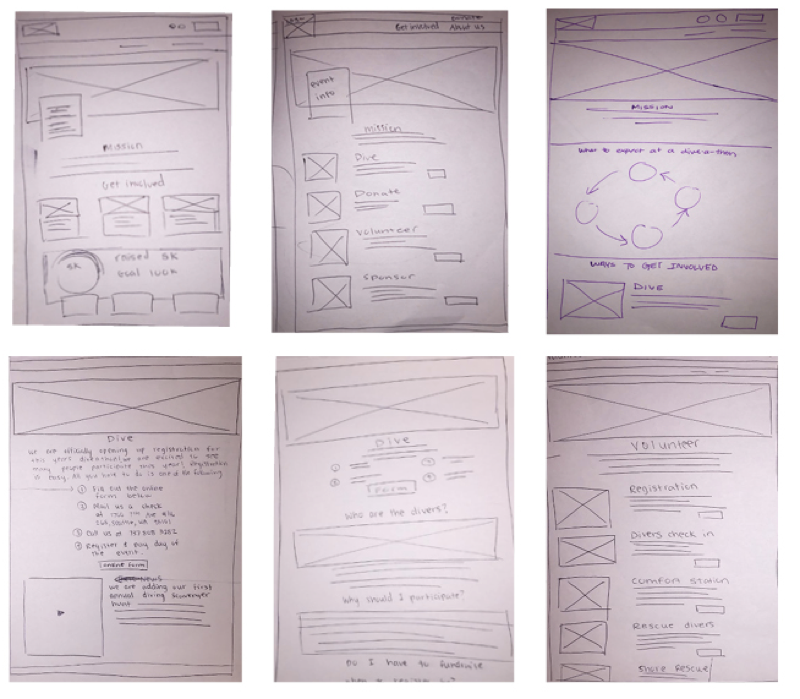 mission
Get involved
5k
raised 5k
Goal 100k
Get involved
About us
event
info
mission
Dive
Donate
volunteer
sponsor
MISSION
What to expect at a dive-a-thon
WAYS TO GET INVOLVED
DIVE
Dive
we are officially opening up registration for
this year's
many people participate this year! Registration
is easy. All you have to do is one of the following
① Fill out the online
form below
② Mail us a check
at
③ Call us at
④ Register day of
the event.
online form
we are adding our first
annual diving scavenger
hunt
Dive
Form
Who are the divers?
Why should I participate?
Do I have to fundraise
Volunteer
Registration
Divers check in
Comfort station
Rescue divers
Shore Rescue